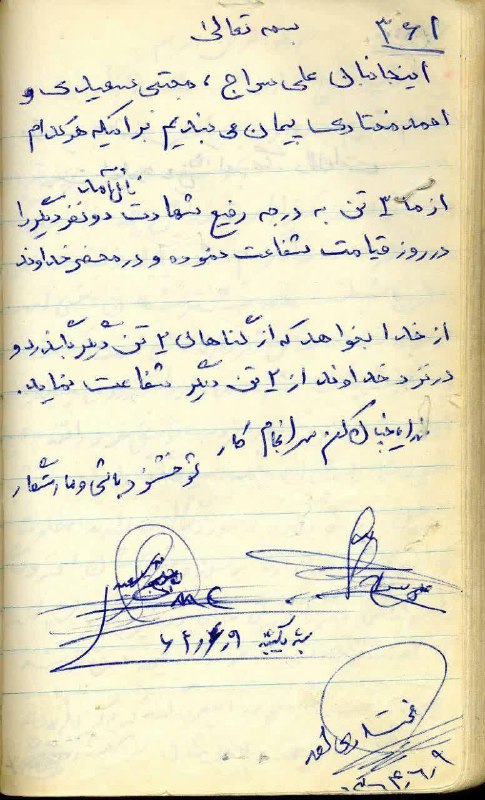 ۳۶۱
بسمه تعالی
اینجانبان علی سراج، مجتبی سعیدی و
احمد مختاری پیمان می بندیم بر اینکه هر کدام
از ما ۳ تن به درجه رفیع شهادت نائل آمد دو نفر دیگر را
در روز قیامت شفاعت نموده و در محضر خداوند
از خدا بخواهد که از گناهان ۲ تن دیگر بگذرد و
در نزد خداوند از ۲ تن دیگر شفاعت نماید.
خدایا چنان کن سرانجام کار
تو خشنود باشی و ما رستگار
شنبه
مختاری احمد